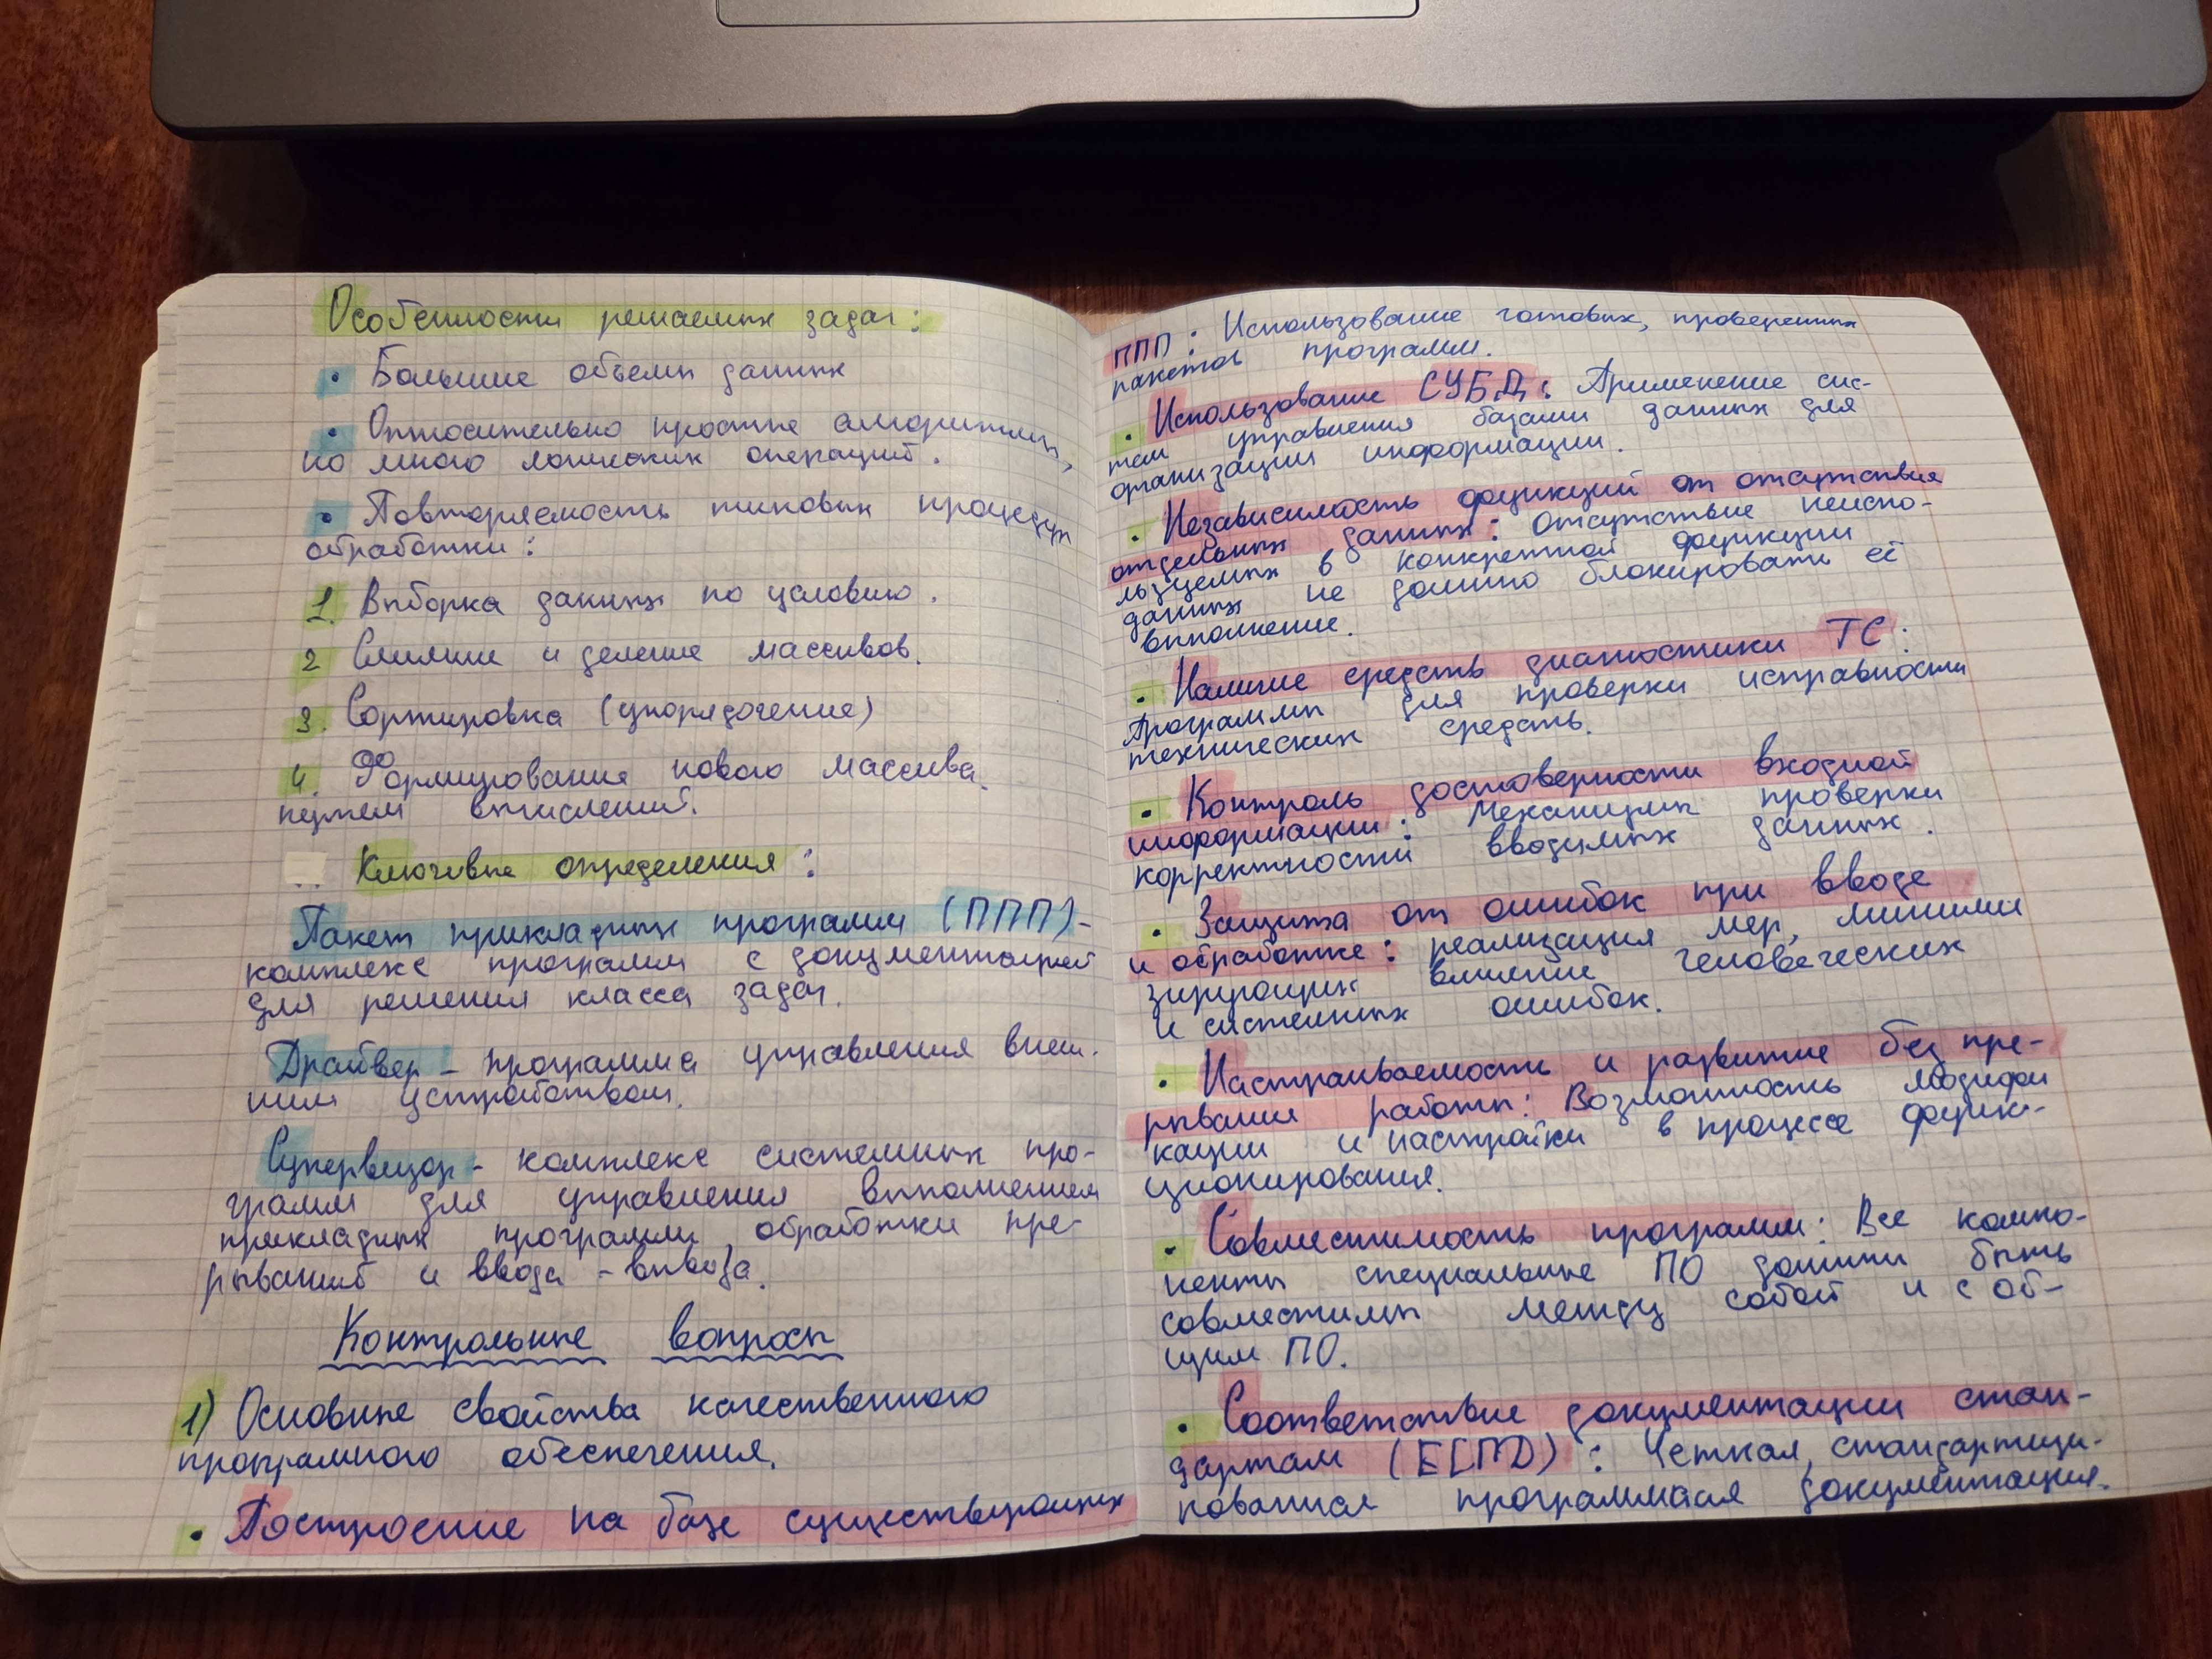 Особенности решаемых задач:
• Большие объемы данных
• Относительно простые алгоритмы,
но много логических операций.
• Повторяемость типовых процедур
обработки:
1. Выборка данных по условию.
2 Слияние и деление массивов.
3. Сортировка (упорядочение)
4. Формирование нового массива
путем вычислений.
Ключевые определения:
Пакет прикладных программ (ППП) -
комплекс программ с документацией
для решения класса задач.
Драйвер - программа управления внеш-
ним устройством.
Супервизор - комплекс системных про-
грамм для управления выполнением
прикладных программ, обработки пре-
рываний и ввода - вывода.
Контрольные вопросы
1) Основные свойства качественного
программного обеспечения.
• Построение на базе существующих
ППП: Использование готовых, проверенных
пакетов программ.
• Использование СУБД: Применение сис-
тем управления базами данных для
организации информации.
• Независимость функций от отсутствия
отдельных данных: Отсутствие неиспо-
льзуемых в конкретной функции
данных не должно блокировать её
выполнение.
• Наличие средств диагностики ТС:
Программы для проверки исправности
технических средств.
• Контроль достоверности входной
информации: Механизмы проверки
корректности вводимых данных.
• Защита от ошибок при вводе
и обработке: реализация мер, миними
зирующих влияние человеческих
и системных ошибок.
• Настраиваемость и развитие без пре-
рывания работы: Возможность модифи
кации и настройки в процессе функ-
ционирования.
• Совместимость программ: Все компо-
ненты специальные ПО должны быть
совместимы между собой и с об-
щим ПО.
• Соответствие документации стан-
дартам (ЕСПД): Четкая, стандартизи-
рованная программная документация.